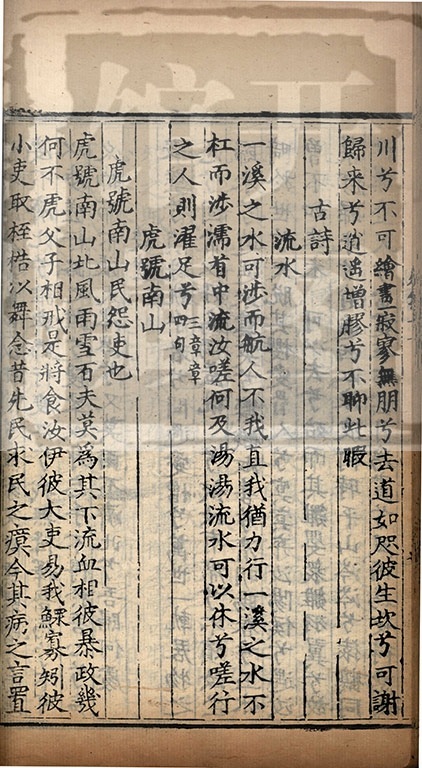 川兮不可繪畫寂寥無朋兮去道如咫彼生坎兮可謝
歸来兮逍遥增膠兮不聊此暇
古詩
流水
一溪之水可涉而航人不我直我猶力行一溪之水不
杠而涉濡首中流汝嗟何及湯湯流水可以休兮嗟行
之人則濯足兮三章章四句
虎號南山
虎號南山民怨吏也
虎號南山北風雨雪百夫莫為其下流血相彼暴政幾
何不虎父子相戒是將食汝伊彼大吏易我鰥寡矧彼
小吏取桎梏以舞念昔先民求民之瘼今其病之言置